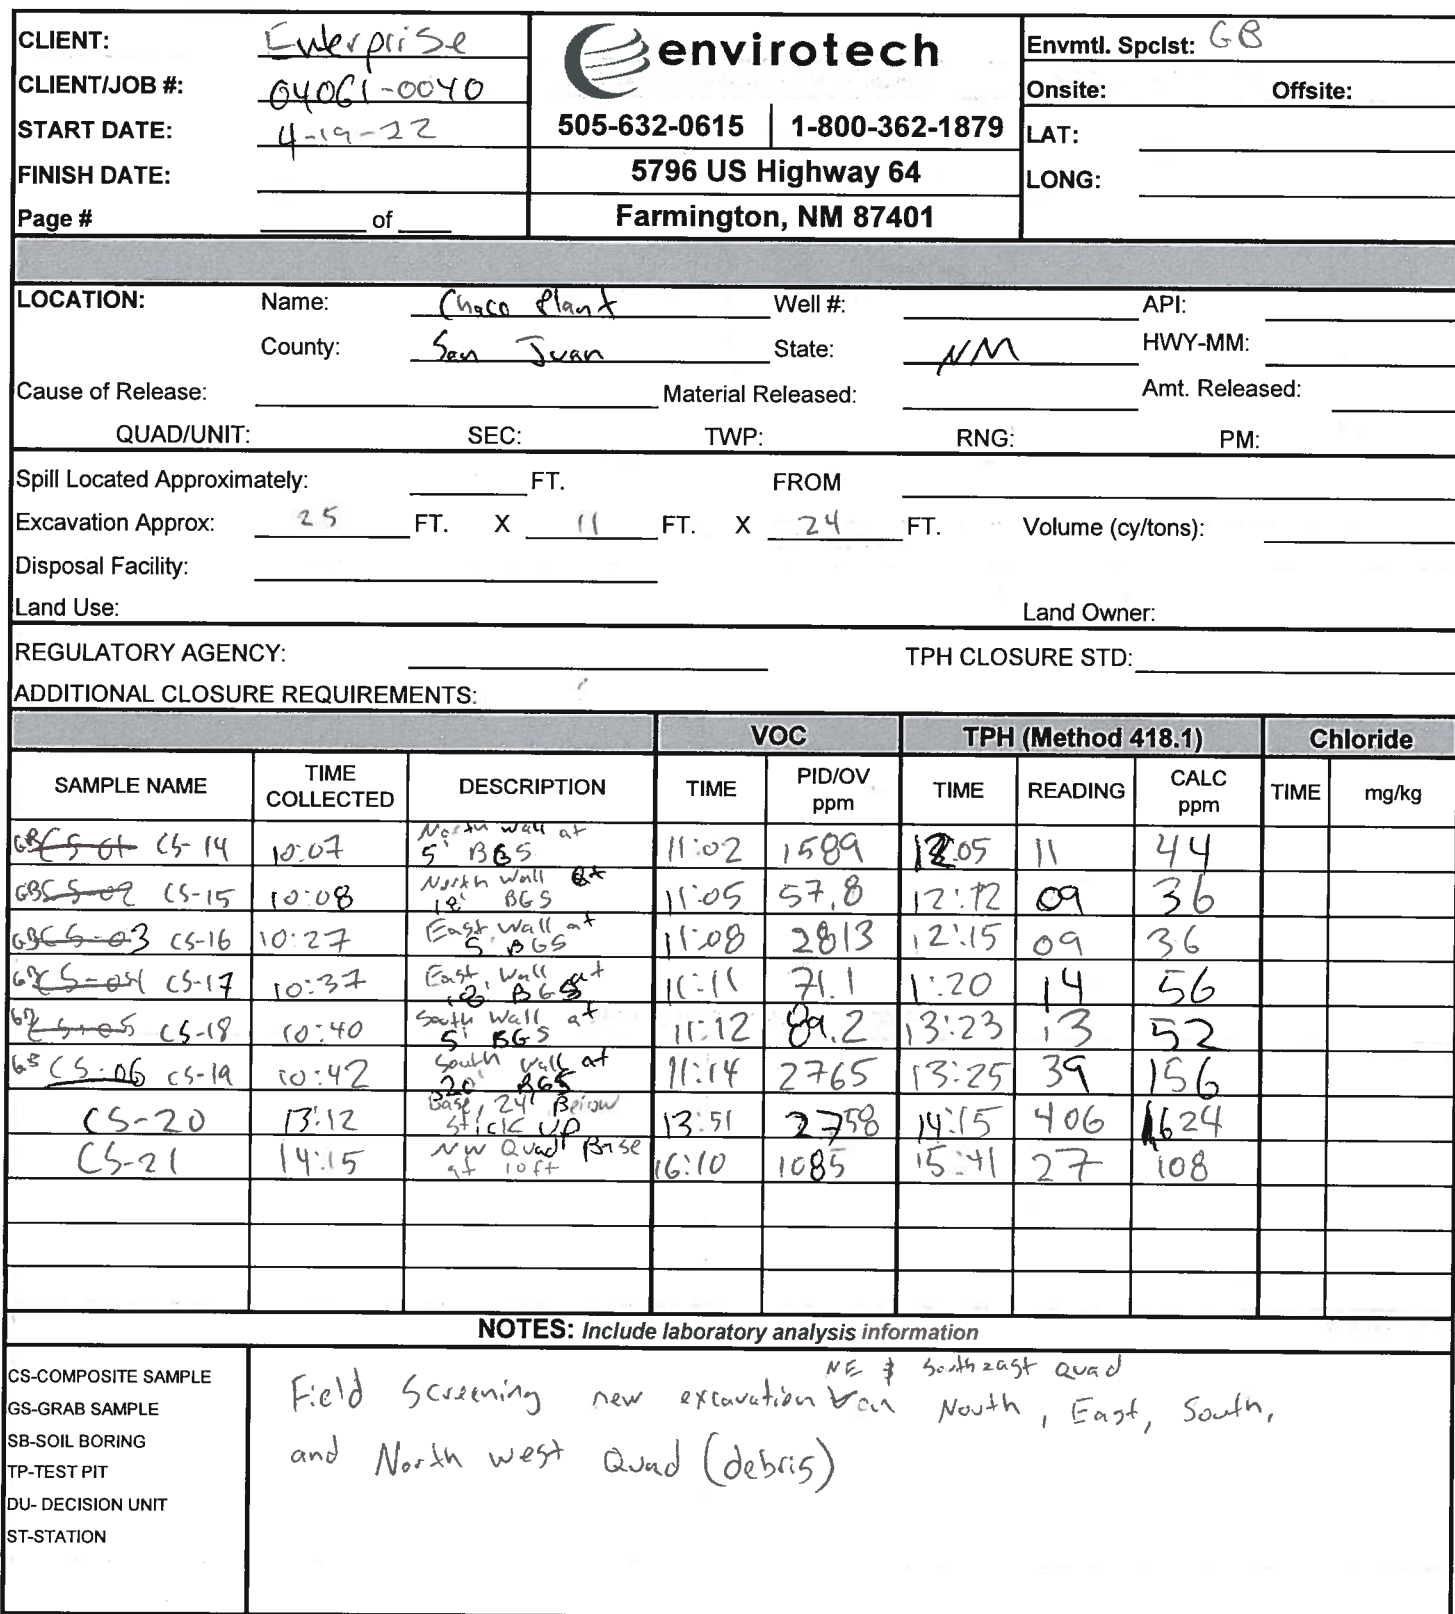 CLIENT: Enterprise
CLIENT/JOB #: 04061-0040
START DATE: 4-19-22
FINISH DATE:
Page # of
envirotech
505-632-0615 1-800-362-1879
5796 US Highway 64
Farmington, NM 87401
Envmtl. Spclst: GB
Onsite: Offsite:
LAT:
LONG:
LOCATION: Name: Chaco Plant Well #: API:
County: San Juan State: NM HWY-MM:
Cause of Release: Material Released: Amt. Released:
QUAD/UNIT: SEC: TWP: RNG: PM:
Spill Located Approximately: FT. FROM
Excavation Approx: 25 FT. X 11 FT. X 24 FT. Volume (cy/tons):
Disposal Facility:
Land Use: Land Owner:
REGULATORY AGENCY: TPH CLOSURE STD:
ADDITIONAL CLOSURE REQUIREMENTS:
VOC TPH (Method 418.1) Chloride
SAMPLE NAME TIME COLLECTED DESCRIPTION TIME PID/OV ppm TIME READING CALC ppm TIME mg/kg
GB CS-01 CS-14 10:07 North wall at 5' BGS 11:02 1589 12:05 11 44
GB CS-02 CS-15 10:08 North Wall at BGS 11:05 57.8 12:12 09 36
GB CS-03 CS-16 10:27 East Wall at 5' BGS 11:08 2813 12:15 09 36
GB CS-04 CS-17 10:37 East Wall at BGS 11:11 71.1 1:20 14 56
GB CS-05 CS-18 10:40 South Wall at 5' BGS 11:12 89.2 13:23 13 52
GB CS-06 CS-19 10:42 South Wall at 20' BGS 11:14 2765 13:25 39 156
CS-20 13:12 Base, 24' Below Stick UP 13:51 2758 14:15 406 1624
CS-21 14:15 NW Quad Base at 10ft 16:10 1085 15:41 27 108
NOTES: Include laboratory analysis information
CS-COMPOSITE SAMPLE
GS-GRAB SAMPLE
SB-SOIL BORING
TP-TEST PIT
DU- DECISION UNIT
ST-STATION
NE & Southeast Quad
Field Screening new excavation North, East, South,
and North west Quad (debris)